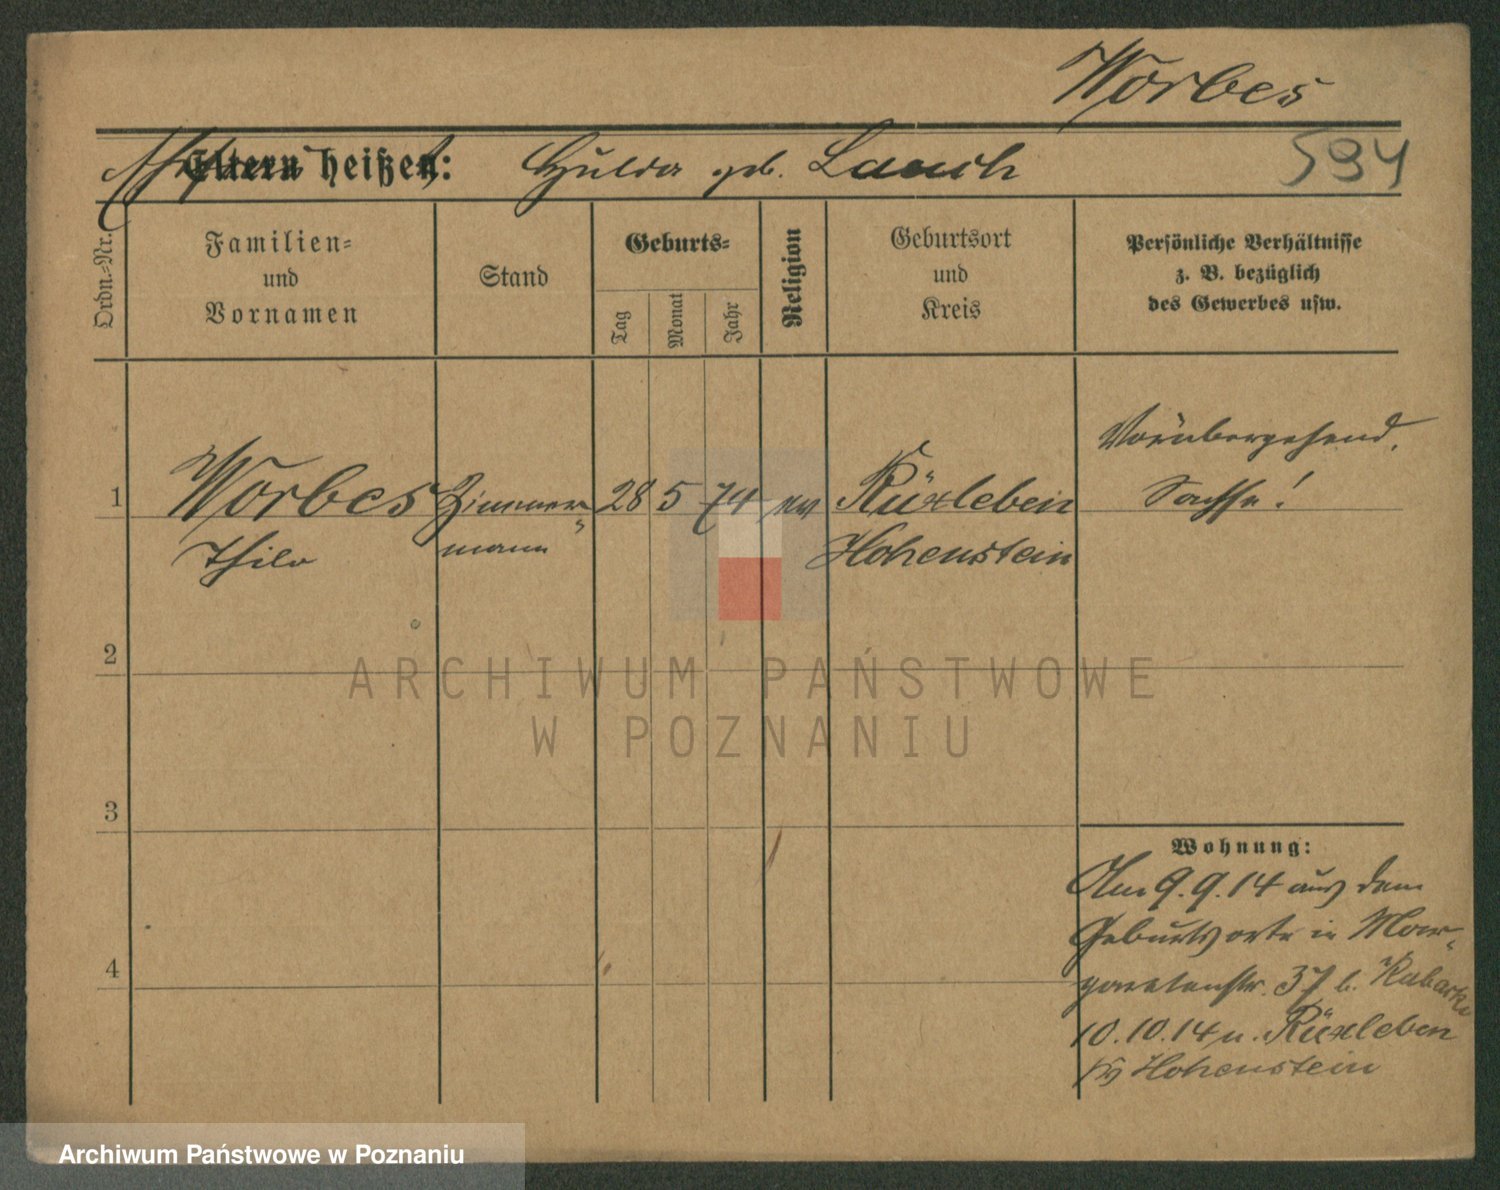 Worbes
Eltern heißen: Hulda geb. Lauch
594
Ordn.-Nr.
Familien-
und
Vornamen
Stand
Geburts-
Tag
Monat
Jahr
Religion
Geburtsort
und
Kreis
Persönliche Verhältnisse
z. B. bezüglich
des Gewerbes usw.
1 Worbes Zimmer 28 5 74 ev Rüxleben
Thilo mann Hohenstein
Vorübergehend.
Sachse!
2
3
4
Wohnung:
Am 9.9.14 aus dem
Geburtsorte in Mar-
garetenstr. 37 b. Kubacki
10.10.14 n. Rüxleben
Kr Hohenstein
ARCHIWUM PAŃSTWOWE
W POZNANIU
Archiwum Państwowe w Poznaniu